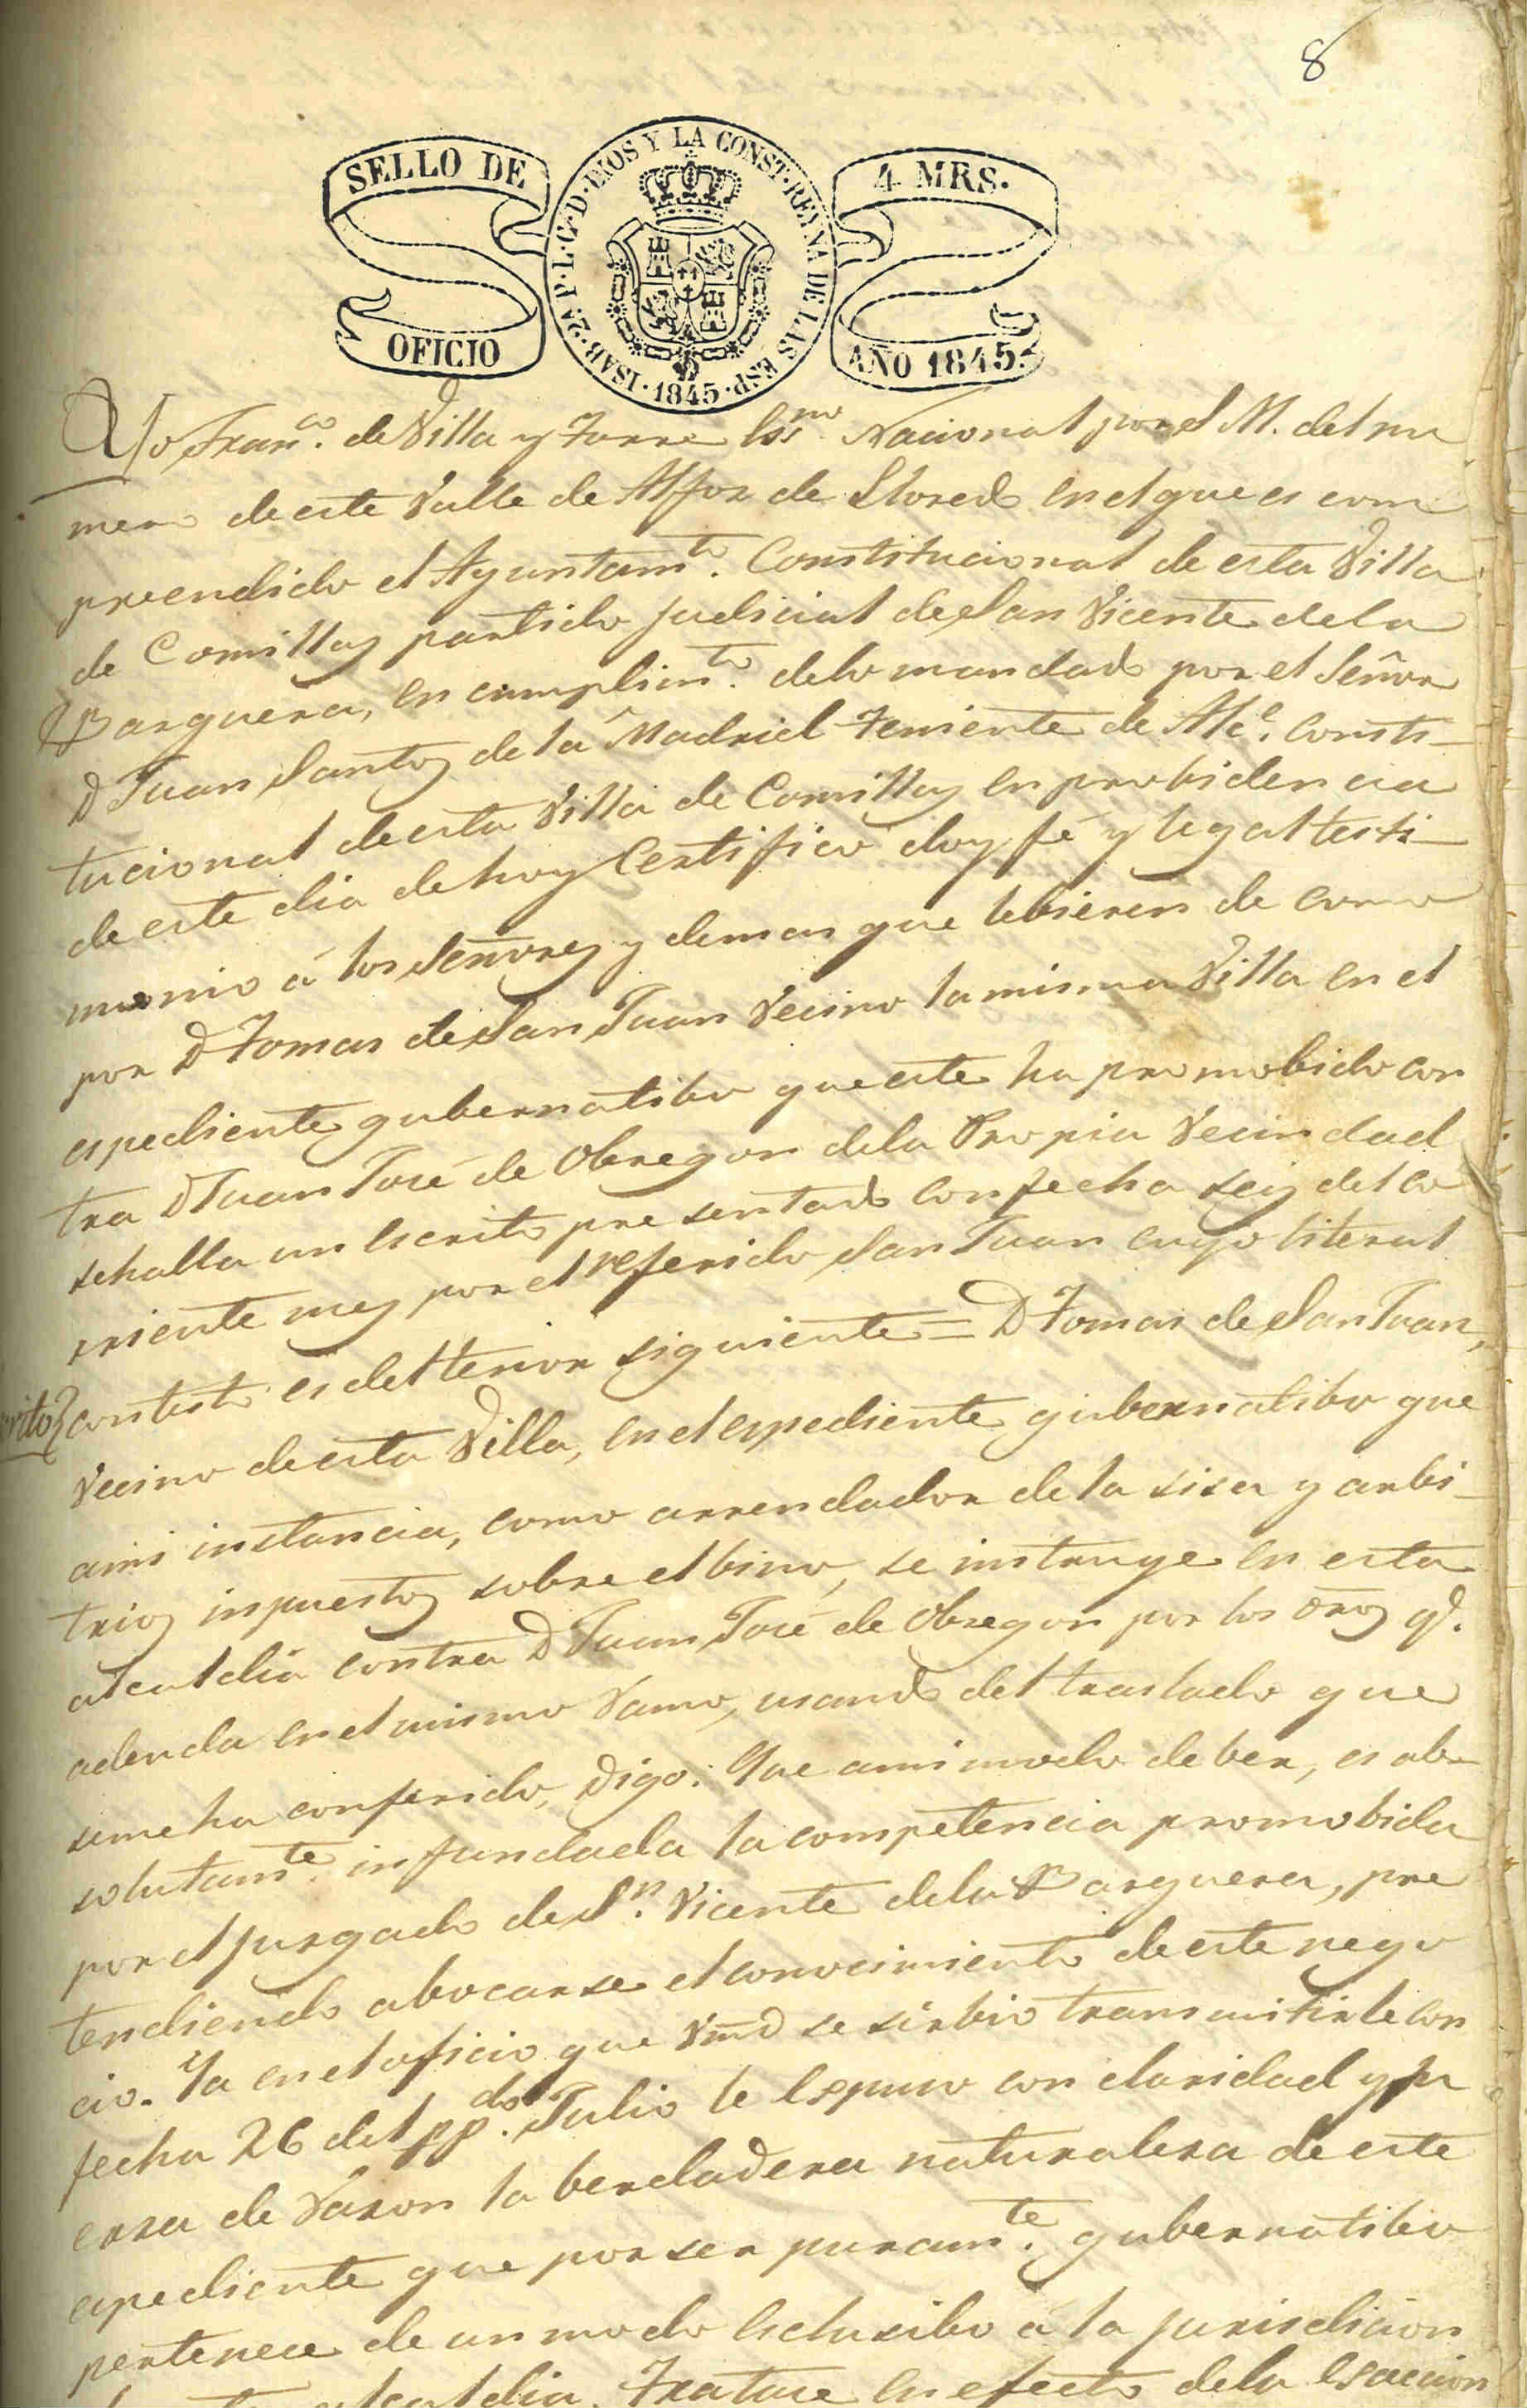 8
SELLO DE OFICIO
ISAB. 2ª P. L. G. D. DIOS Y LA CONST. REYNA DE LAS ESP. 1845.
4 MRS.
AÑO 1845.
Yo Fran.co de Villa y Torre Ess.no Nacional por S M. del nu
mero de este Valle de Alfoz de Lloredo en el que es com
preendido el Ayuntam.to Constitucional de esta Villa
de Comillas partido judicial de San Vicente de la
Barquera, en cumplim.to de lo mandado por el Señor
D Juan Santos de la Madrid Teniente de Alc.e Consti-
tucional de esta Villa de Comillas en probidencia
de este dia de hoy Certifico doy fé y legal testi-
monio á los Señores y demas que lebieren de como
por D Tomas de San Juan Vecino la misma Villa en el
espediente gubernatibo que este ha promobido con
tra D Juan José de Obregon de la Propia Vecindad
se halla un escrito presentado con fecha seis del co
rriente mes por el referido San Juan cuyo literal
crito contesto es del tenor siguiente = D Tomas de San Juan,
Vecino de esta Villa, en el espediente gubernatibo que
ami instancia, como arrendador de la sisa y arbi-
trios inpuestos sobre el bino, se instruye en esta
alcaldia contra D Juan José de Obregon por los dros q.e
adeuda en el mismo Ramo, usando del traslado que
seme ha conferido, Digo: Que ami modo de ber, es ab-
solutam.te infundada la competencia promobida
por el juzgado de S.n Vicente de la Barquera, pre
tendiendo abocarse el conocimiento de este nego
cio. Ya en el oficio que Vmd se sirbio transmitirle con
fecha 26 del pp.do Julio le espuso con claridad y fu
erza de Razon la berdadera naturaleza de este
espediente que por ser puram.te gubernatibo
pertenece de un modo esclusibo á la jurisdicion
alcaldia. Tratase en efecto de la esaccion